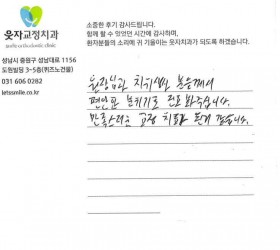 웃자교정치과
성남시 중원구 성남대로 1156
도원빌딩 3~5층(퀴즈노건물)
031 606 0282
letssmile.co.kr
소중한 후기 감사드립니다.
함께 할 수 있었던 시간에 감사하며,
환자분들의 소리에 귀 기울이는 웃자치과가 되도록 하겠습니다.
원장님과 치위생사 분들께서
편안한 분위기로 진료 봐주십니다.
만족스러운 교정 치료가 된거 같습니다.